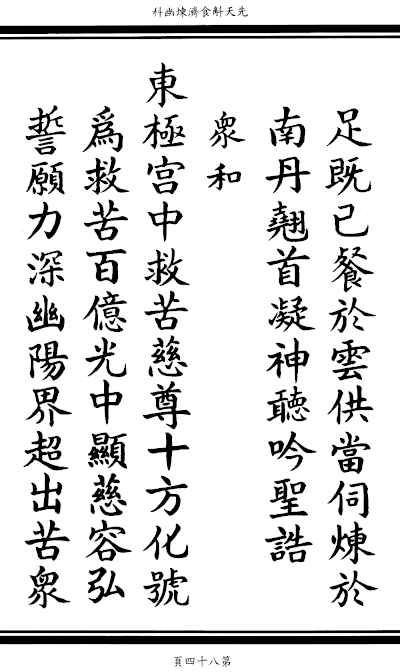 先天斛食濟煉幽科
足既已餐於雲供當伺煉於
南丹翹首凝神聽吟聖誥
眾和
東極宮中救苦慈尊十方化號
為救苦百億光中顯慈容弘
誓願力深幽陽界超出苦眾
第八十四頁